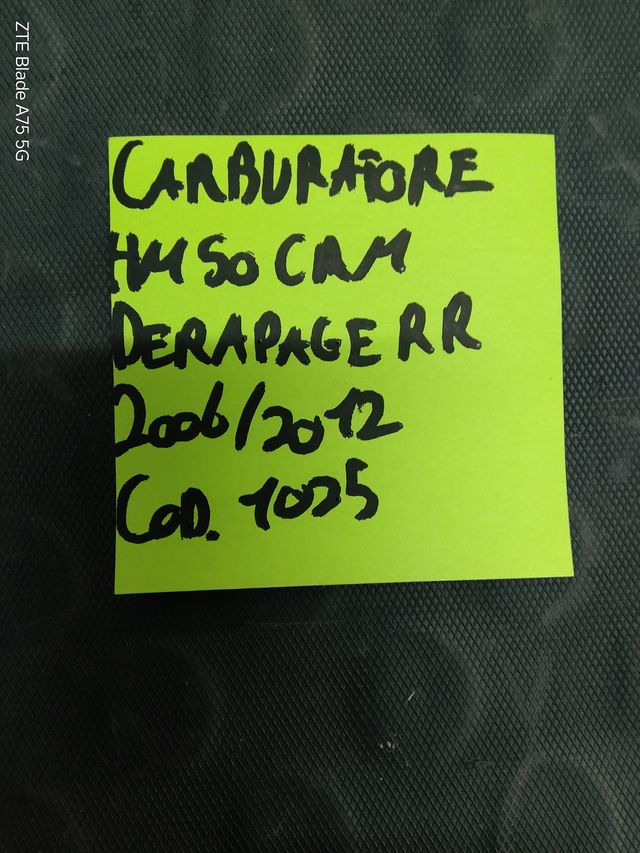 CARBURATORE
HM 50 CRM
DERAPAGE RR
2006/2012
COD. 1025
ZTE Blade A75 5G